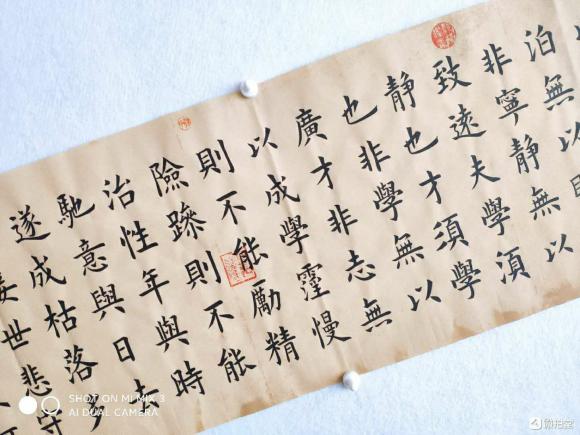 泊無以明
非寧靜無以
致遠夫學須
靜也才須學
也非學無以
廣才非志無
以成學霪慢
則不能勵精
險躁則不能
治性年與時
馳意與日去
遂成枯落多
世悲守
SHOT ON MI MIX 3
AI DUAL CAMERA